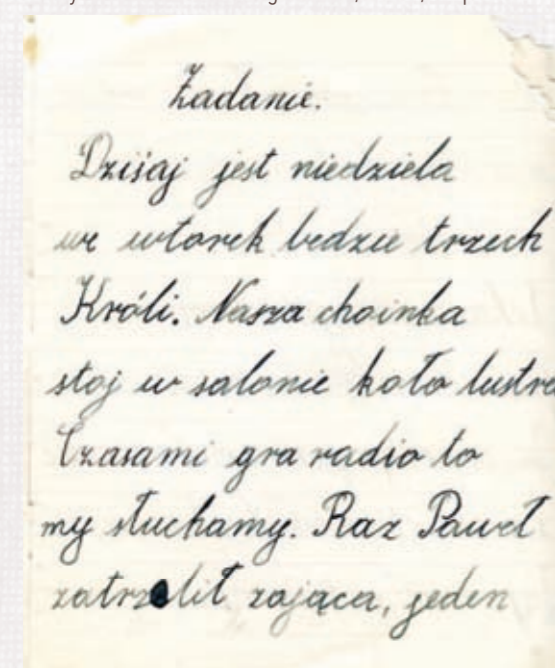 Zadanie.
Dzisiaj jest niedziela
we wtorek bedzie trzech
Króli. Nasza choinka
stoj w salonie koło lustra
Czasami gra radio to
my słuchamy. Raz Paweł
zatrzelił zająca, jeden